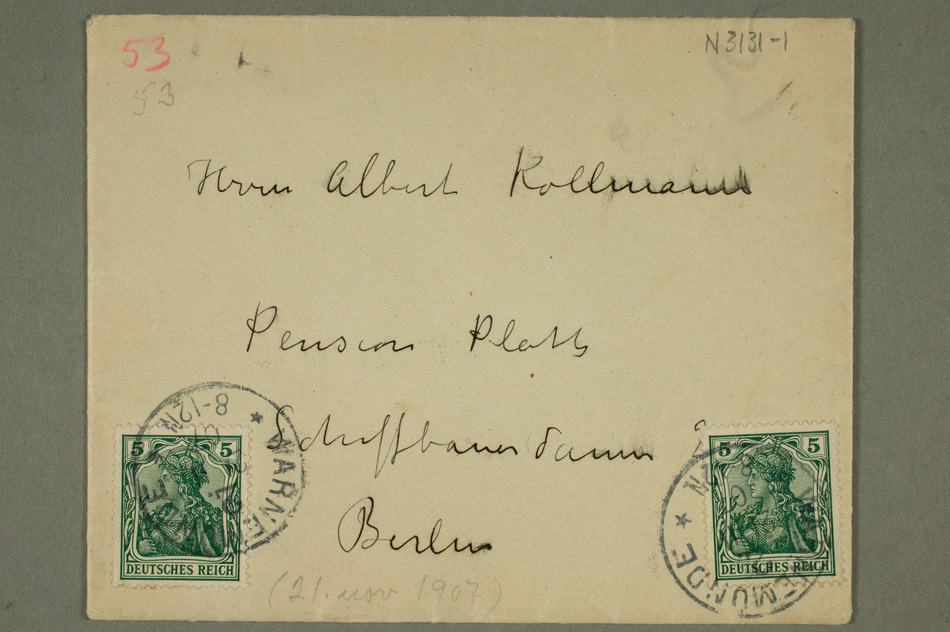 53
N3131-1
53
Herrn Albert Kollmann
Pension Plath
Schiffbauerdamm
Berlin
8-12N * WARNE
5 5
DEUTSCHES REICH
5 5
DEUTSCHES REICH
MÜNDE *
(21. nov 1907)